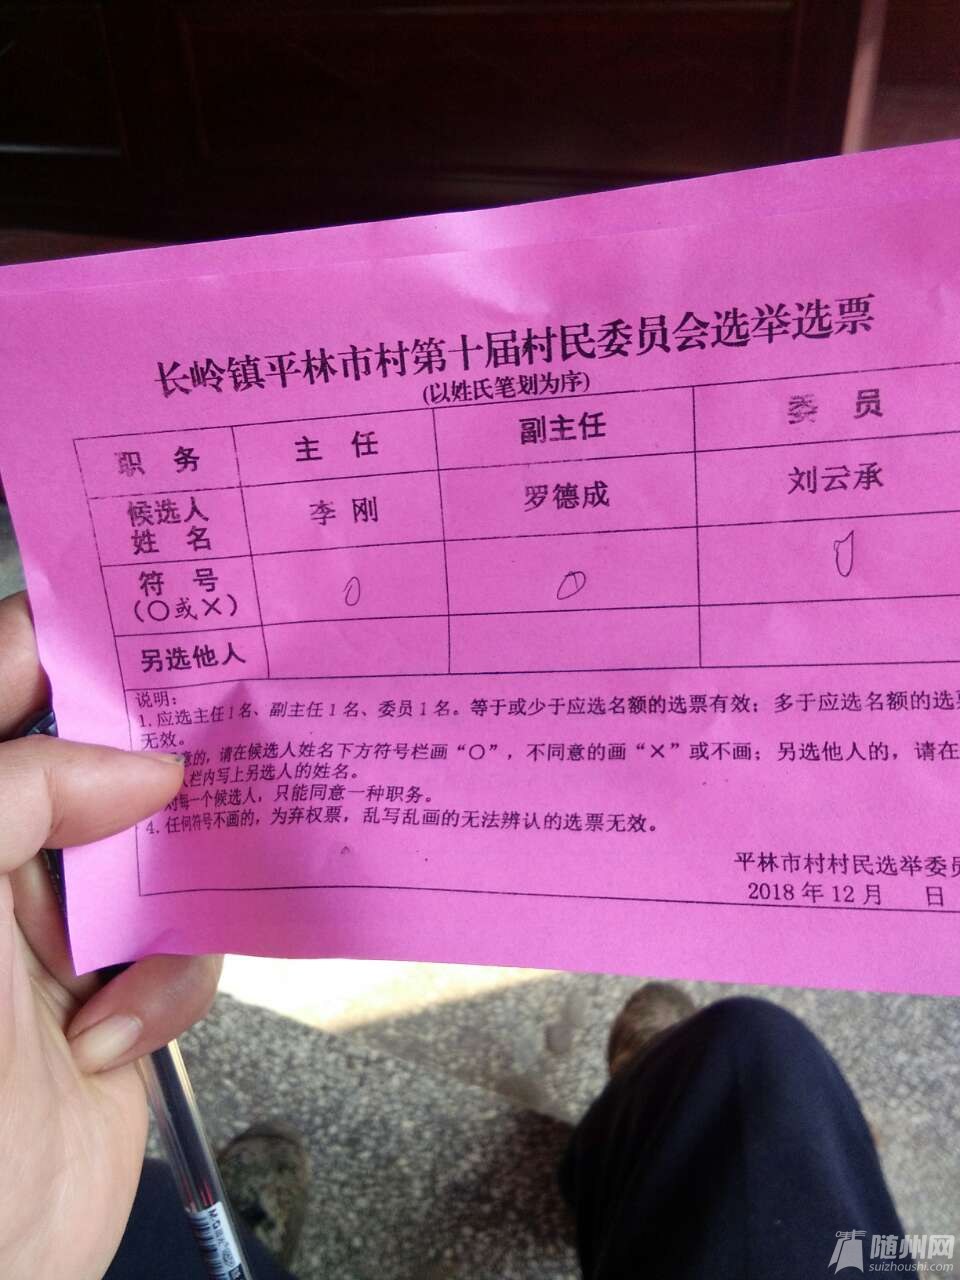 长岭镇平林市村第十届村民委员会选举选票
(以姓氏笔划为序)
职 务 主 任 副主任 委 员
候选人姓 名 李 刚 罗德成 刘云承
符 号(〇或×) 〇 〇 〇
另选他人
说明：
1. 应选主任1名、副主任1名、委员1名。等于或少于应选名额的选票有效；多于应选名额的选
无效。
意的，请在候选人姓名下方符号栏画“〇”，不同意的画“×”或不画；另选他人的，请在
人栏内写上另选人的姓名。
对每一个候选人，只能同意一种职务。
4. 任何符号不画的，为弃权票，乱写乱画的无法辨认的选票无效。
平林市村村民选举委员
2018年12月 日
M&G
随州网
suizhoushi.com